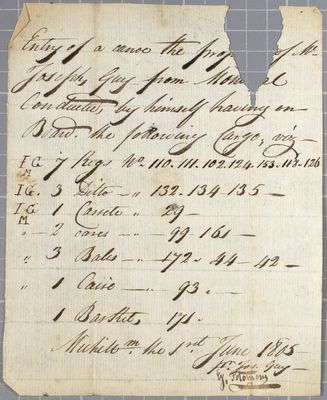 Entry of a canoe the prop of Mr
Joseph Guy from Montreal
Conducted, by himself having on
Board. the following Cargo, viz
IG 7 Kegs No. 110. 111. 102. 124. 153. 118. 126
M
IG. 3 Ditto - " 132. 134 135 -
IG. 1 Cassete " 29 -
M
" - 2 cases - " 99 161 -
" 3 Bales - " 172. 44 - 42 -
" 1 Caire - " 93. -
1 Basket, 171.
Michilm. the 1rst June 1805
pr Jos. Guy -
G. Solomons